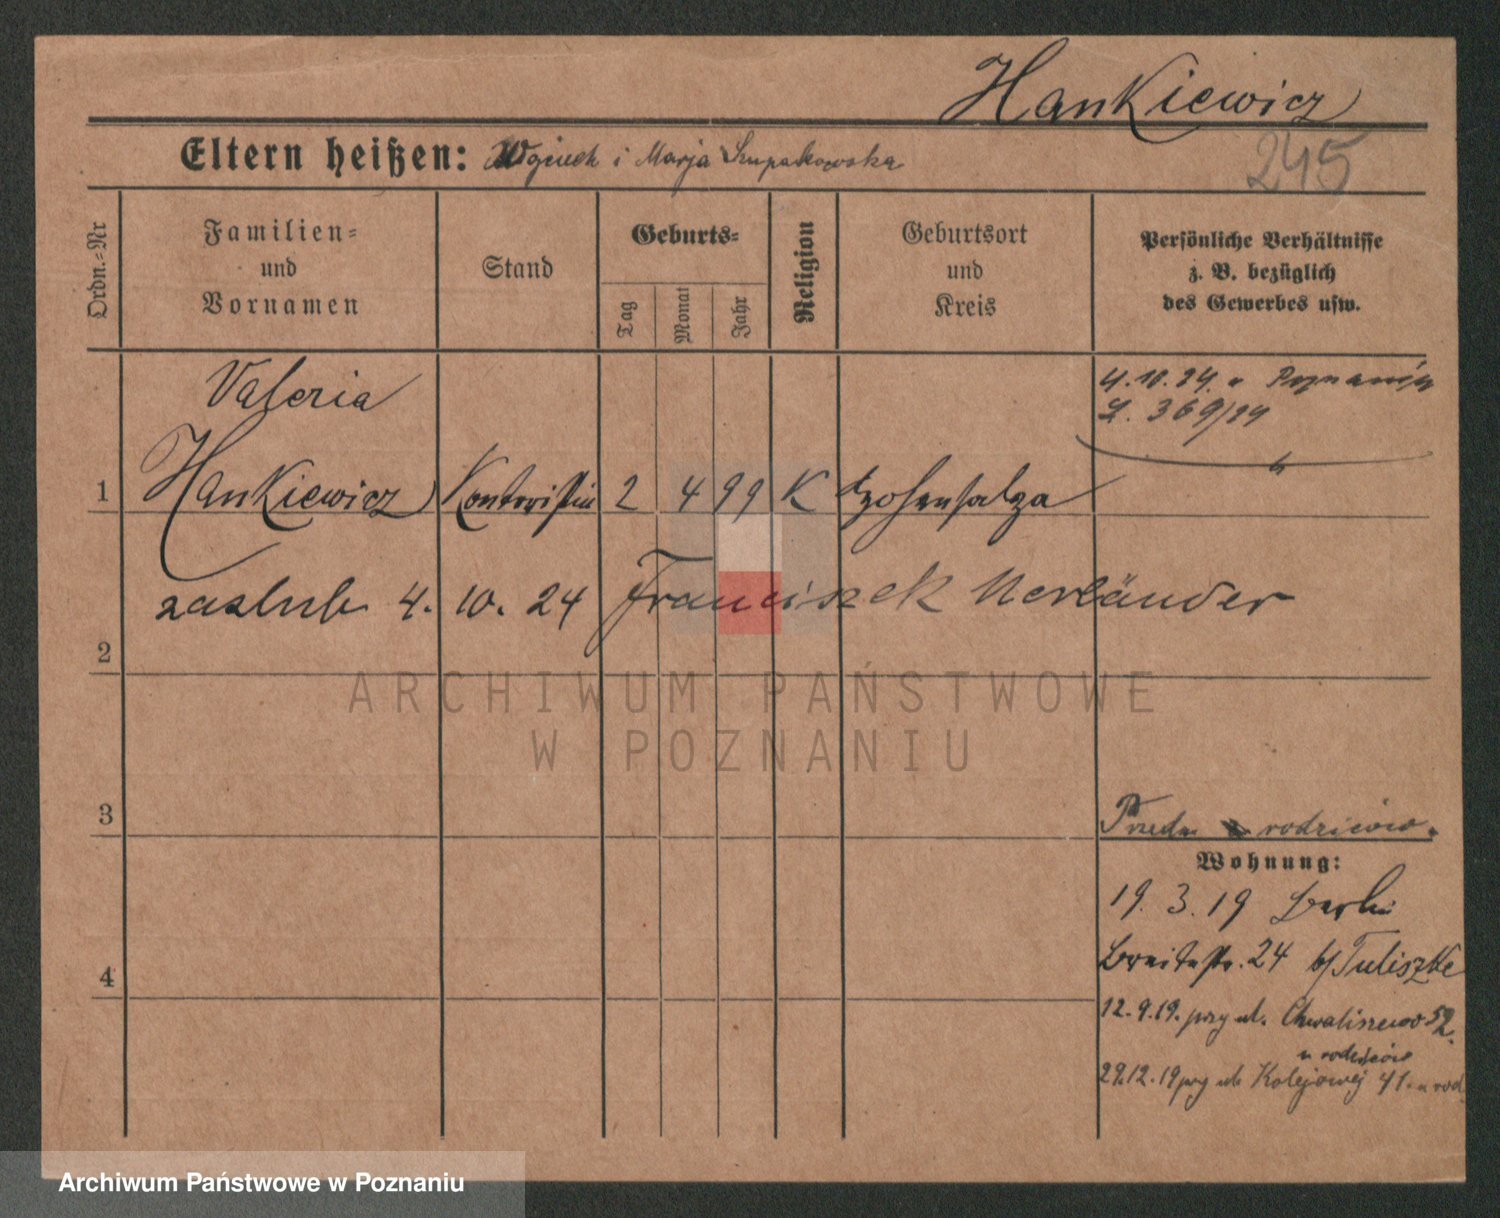 Hankiewicz
245
Eltern heißen: i Marja Szupakowska
Ordn.=Nr
Familien=
und
Vornamen
Stand
Geburts=
Tag
Monat
Jahr
Religion
Geburtsort
und
Kreis
Persönliche Verhältnisse
z. B. bezüglich
des Gewerbes usw.
4.10.24. Poznań
L. 369/24
Valeria
1 Hankiewicz Kontoristin 2 4 99 K Hohensalza
zaslub 4. 10. 24 Franciszek Nerländer
2
ARCHIWUM PAŃSTWOWE
W POZNANIU
3
rodziców.
Wohnung:
19. 3. 19 Berlin
Breitestr. 24 b/ Tuliszke
4
12.9.19. przy ul. Chwaliszewo 52.
u rodziców
29.12.19 przy ul. Kolejowej 41. u rod.
Archiwum Państwowe w Poznaniu